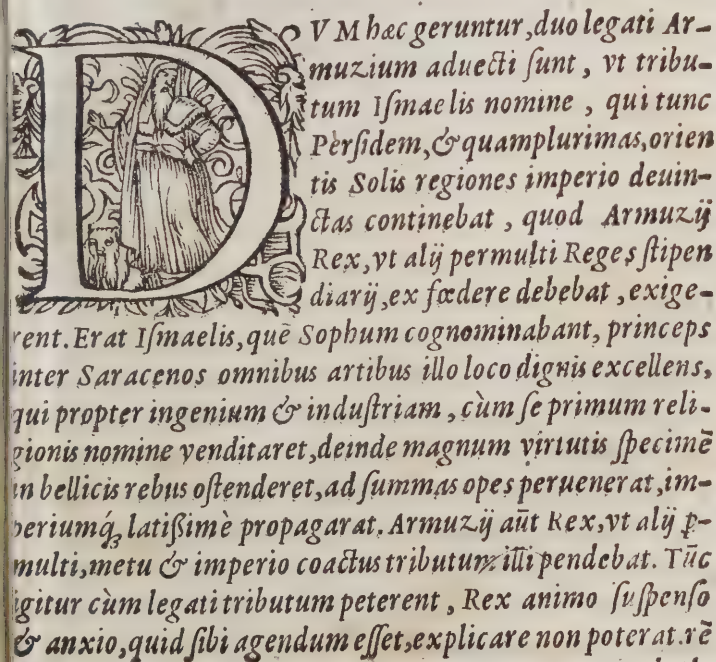 DVM hæc geruntur, duo legati Ar-
muzium aduecti ſunt, vt tribu-
tum Iſmaelis nomine, qui tunc
Pèrſidem, & quamplurimas, orien
tis Solis regiones imperio deuin-
ctas continebat, quod Armuzij
Rex, vt alij permulti Reges ſtipen
diarij, ex fœdere debebat, exige-
rent. Erat Iſmaelis, quē Sophum cognominabant, princeps
inter Saracenos omnibus artibus illo loco dignis excellens,
qui propter ingenium & induſtriam, cùm ſe primum reli-
gionis nomine venditaret, deinde magnum virtutis ſpecimē
in bellicis rebus oſtenderet, ad ſummas opes peruenerat, im-
periumq́ꝫ latißimè propagarat. Armuzij aūt Rex, vt alij ꝑ-
multi, metu & imperio coactus tributum illi pendebat. Tūc
igitur cùm legati tributum peterent, Rex animo ſuſpenſo
& anxio, quid ſibi agendum eſſet, explicare non poterat. rē